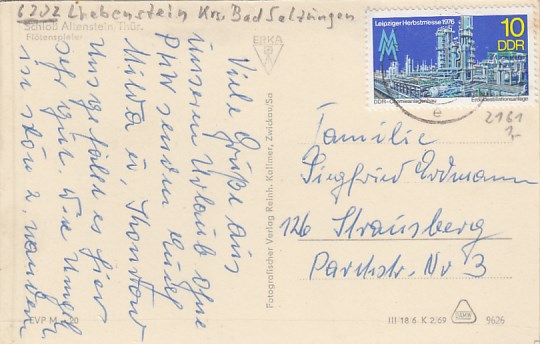 6202 Liebenstein Krs. Bad Salzungen
Schloß Altenstein, Thür.
Flötenspieler
Viele Grüße aus
unserem Urlaub ohne
PKW senden Euch
Milda u. Thorsten
Uns gefällt es hier
sehr gut. Die Umgeb.
ist schön z. wandern
EVP M -,20
ERKA
Fotografischer Verlag Reinh. Kallmer, Zwickau/Sa
Leipziger Herbstmesse 1976
10
DDR
MM
2161
Familie
Siegfried Erdmann
126 Strausberg
Parkstr. Nr 3
III 18 6 K 2/69
9626